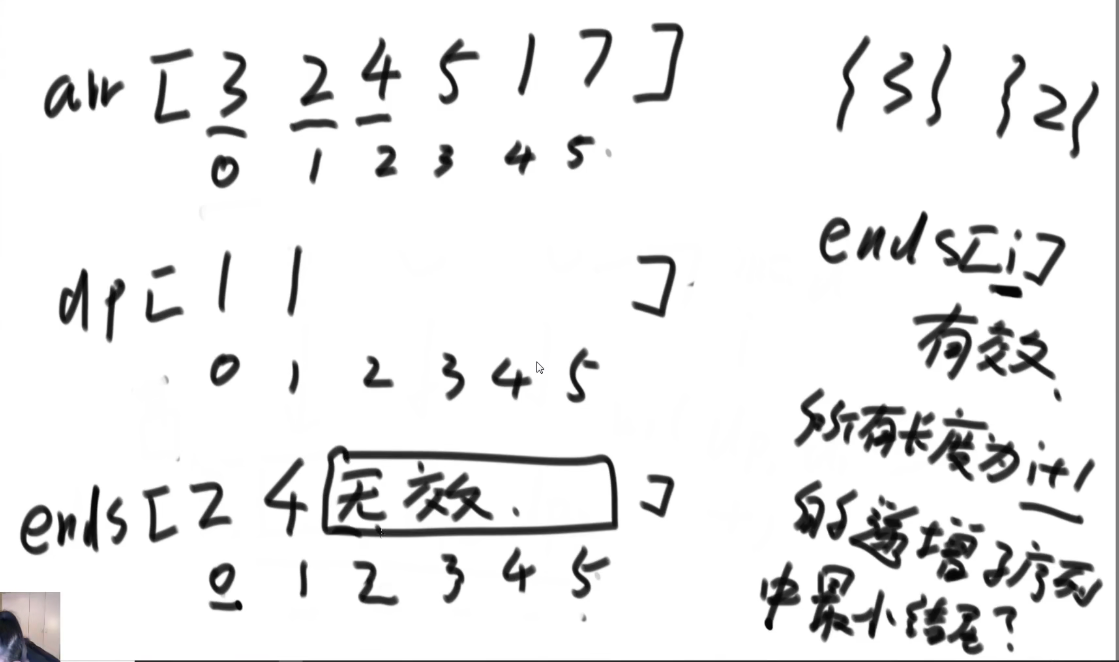 arr [ 3 2 4 5 1 7 ]
0 1 2 3 4 5
dp [ 1 1 ]
0 1 2 3 4 5
ends [ 2 4 无效. ]
0 1 2 3 4 5
{3} {2}
ends[i]
有效.
所有长度为i+1
的递增子序列
中最小结尾?